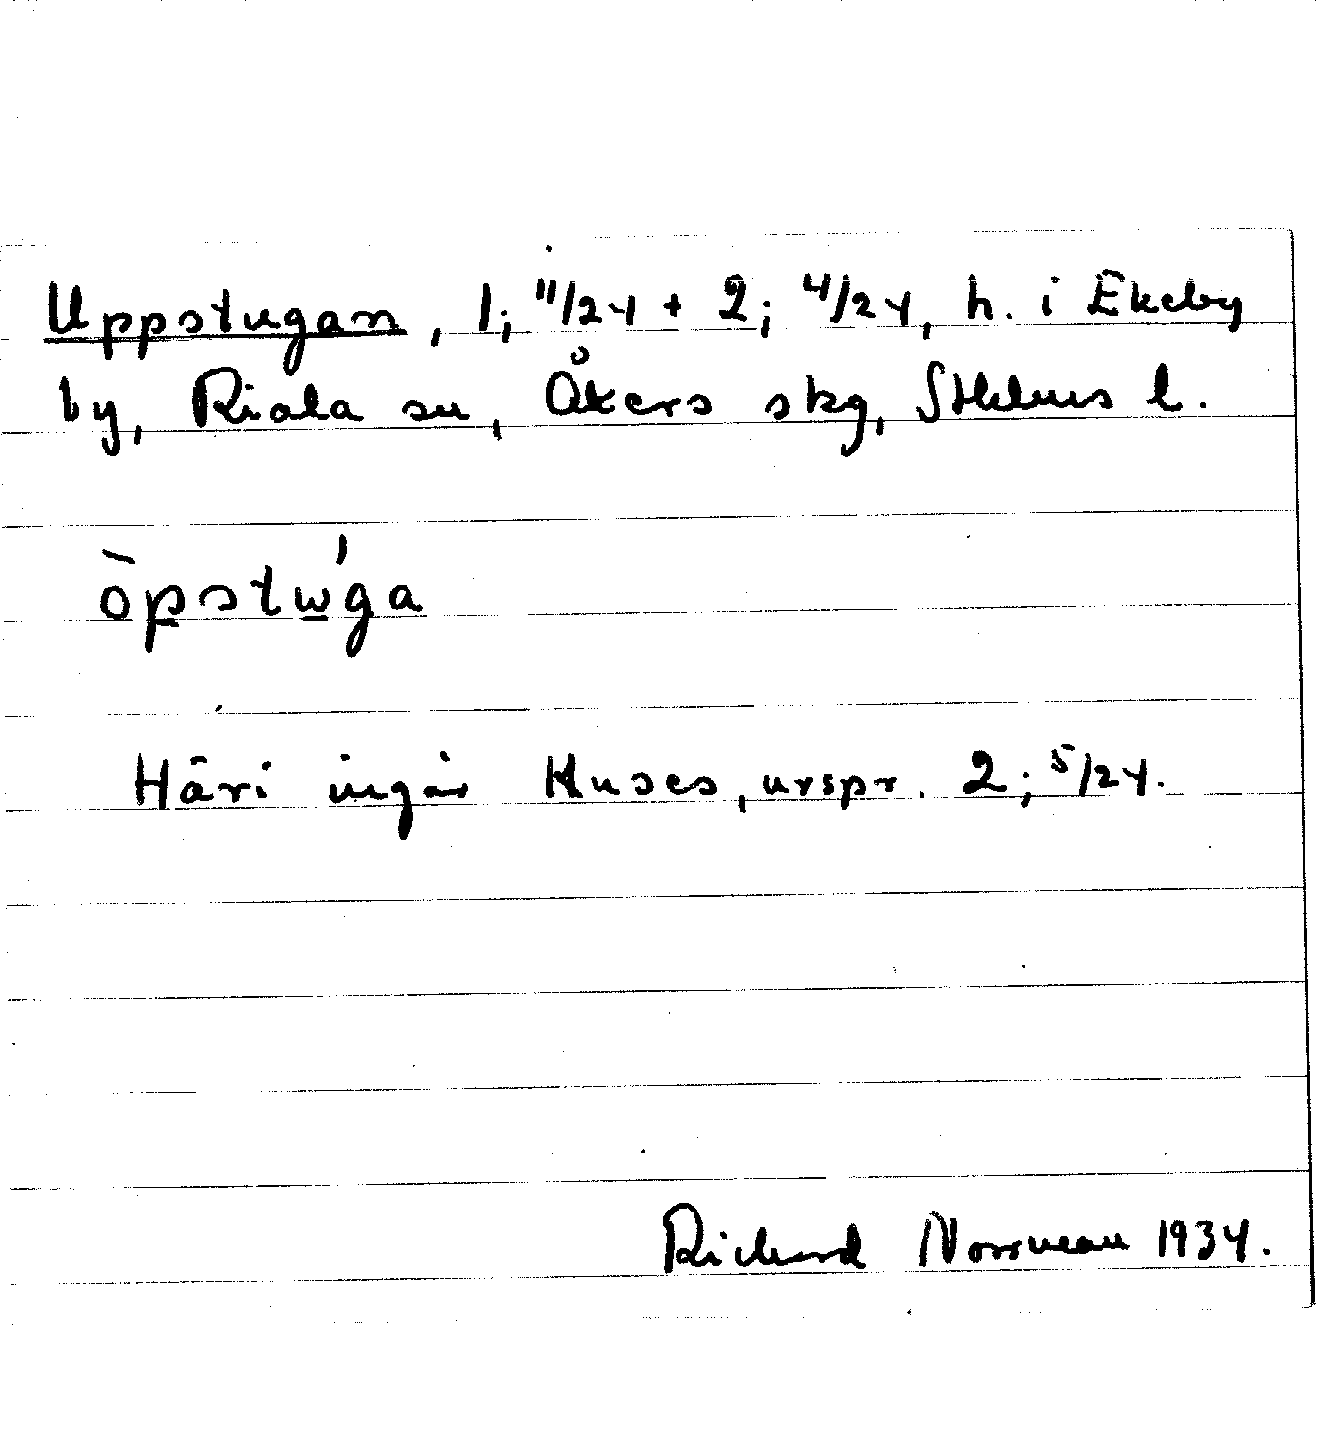 Uppstugan, 1; 11/24 + 2; 4/24, h. i Ekeby
by, Riala sn, Åkers skg, Sthlms l.
òpstẉ́ga
Häri ingår Kuses, urspr. 2; 5/24.
Richard Norrman 1934.